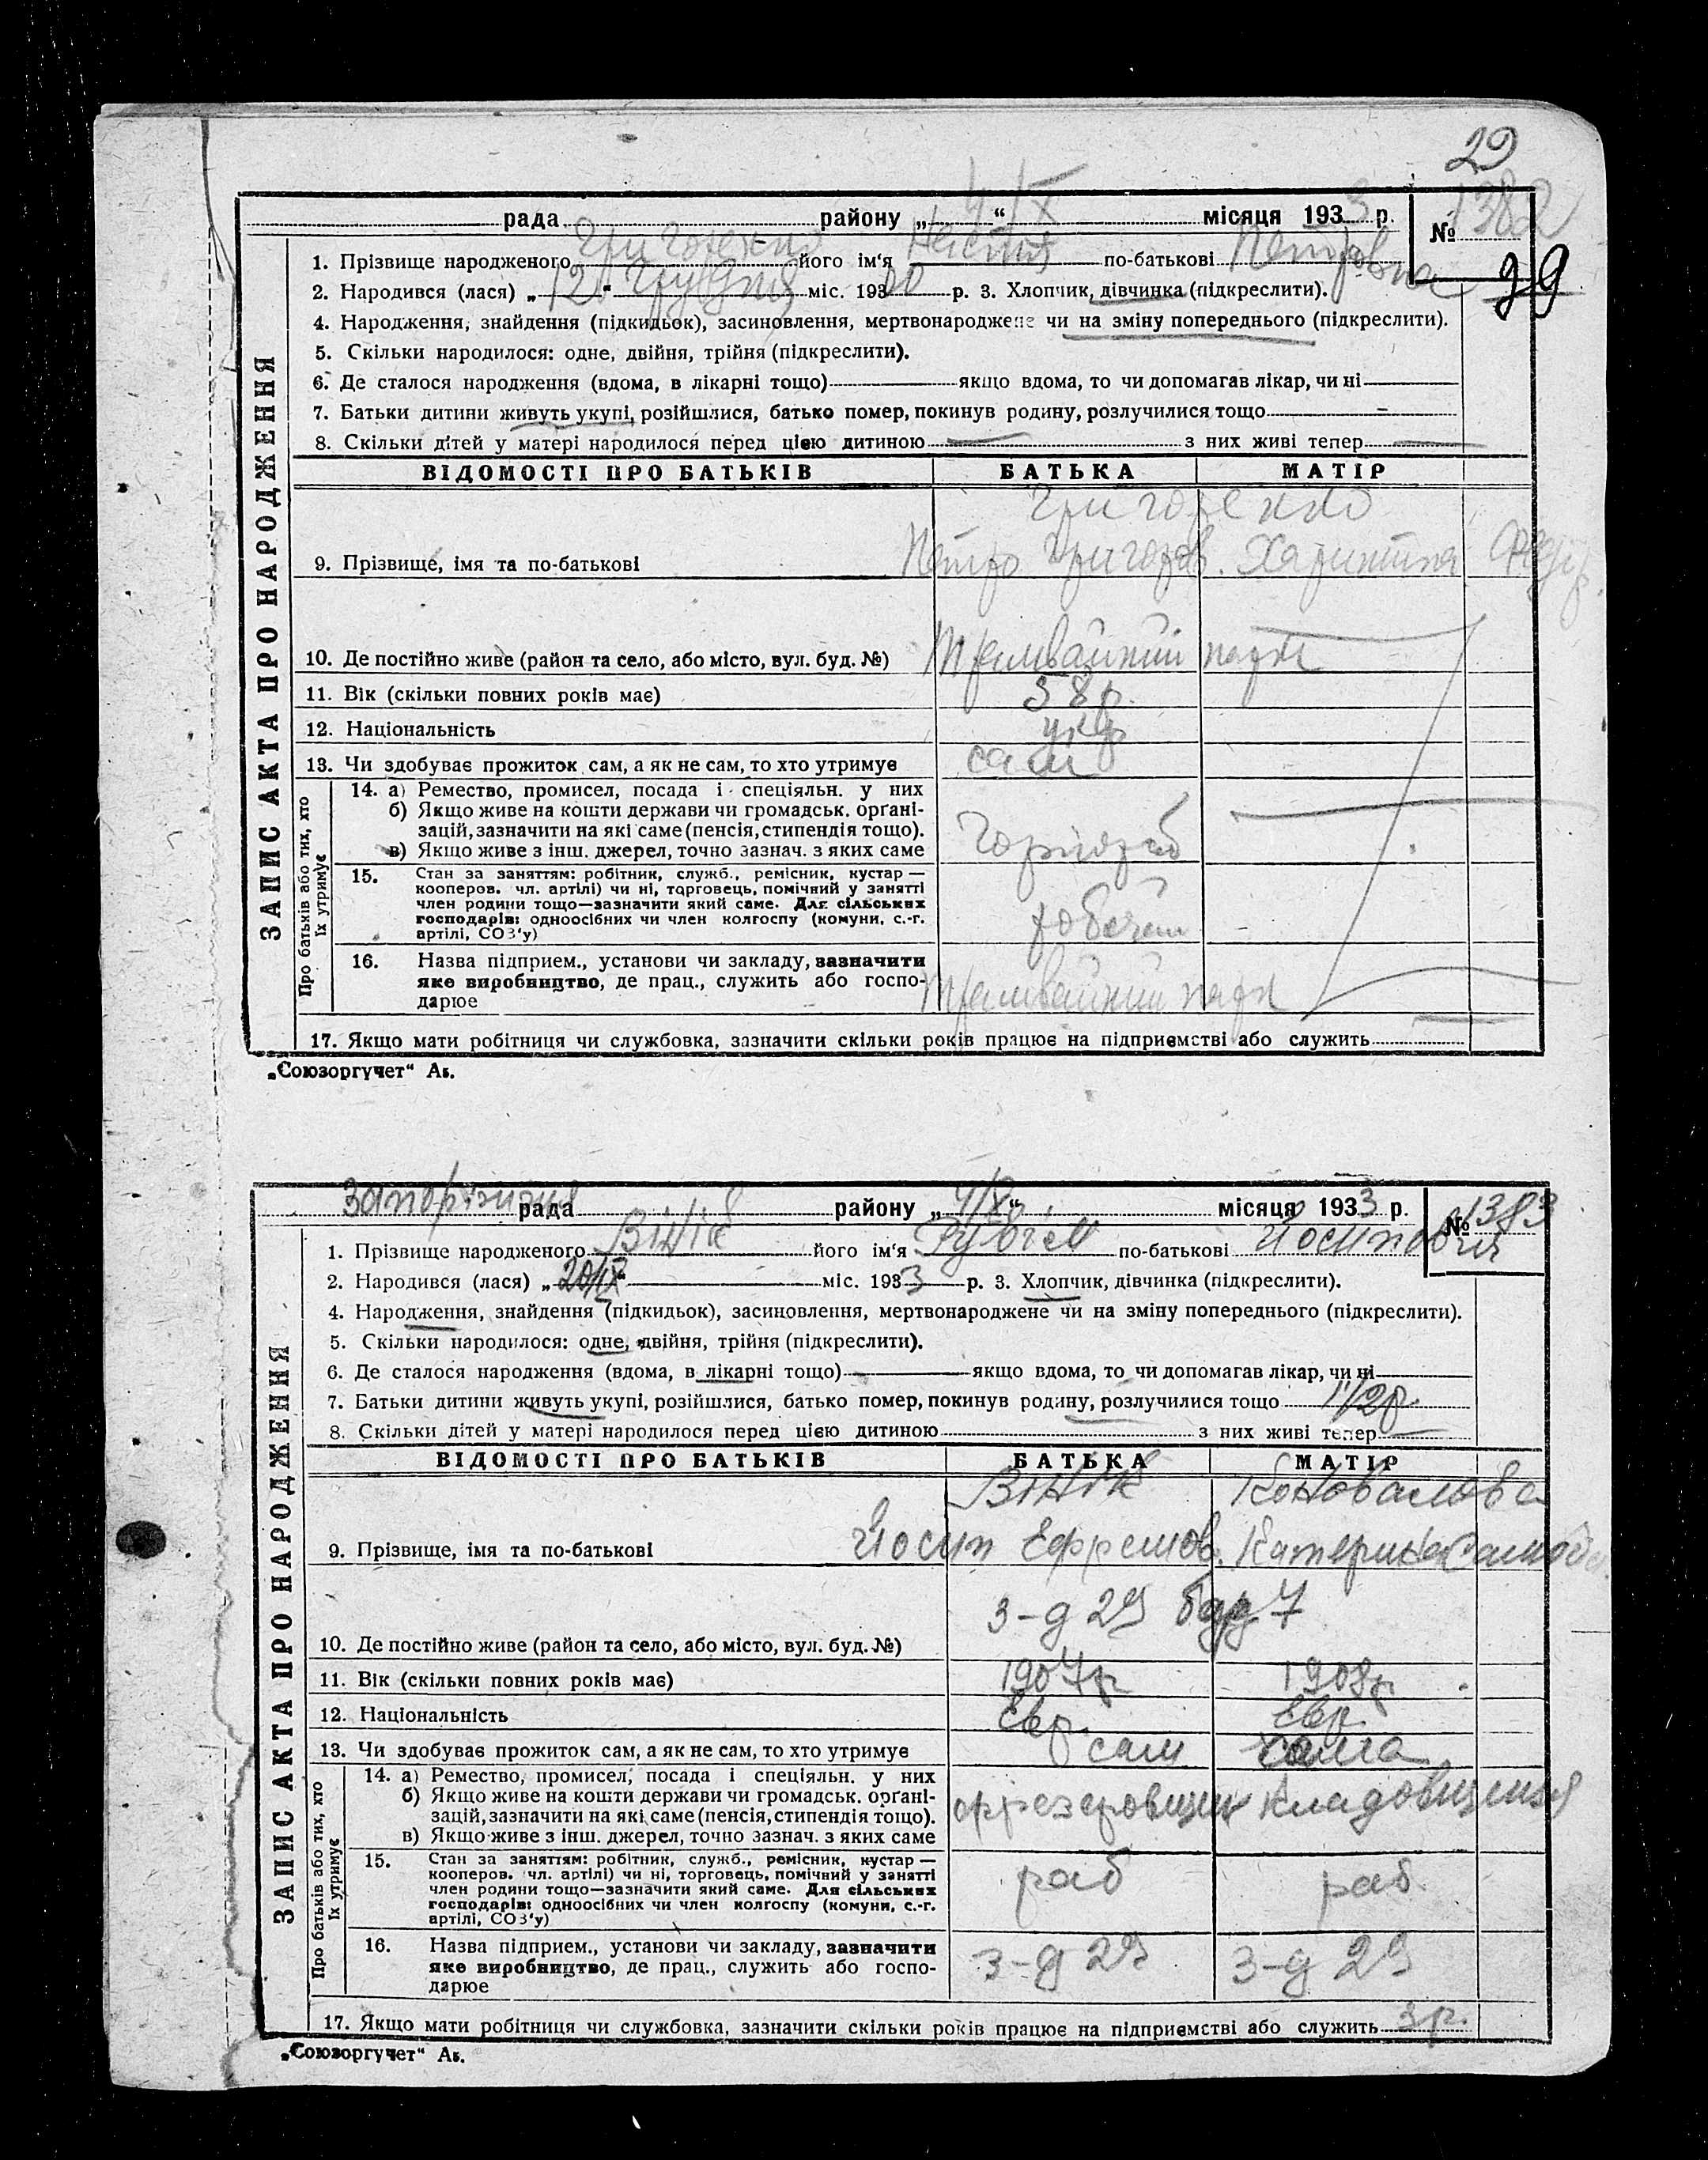 29
рада району „ 4/X “ місяця 1933 р. № 1382
1. Прізвище народженого Григоренко його ім'я Настя по-батькові Петровна
29
2. Народився (лася) „ 12 “ Грудня міс. 19300 р. 3. Хлопчик, дівчинка (підкреслити).
4. Народження, знайдення (підкидьок), засиновлення, мертвонароджене чи на зміну попереднього (підкреслити).
5. Скільки народилося: одне, двійня, трійня (підкреслити).
6. Де сталося народження (вдома, в лікарні тощо) — якщо вдома, то чи допомагав лікар, чи ні
7. Батьки дитини живуть укупі, розійшлися, батько помер, покинув родину, розлучилися тощо –
8. Скільки дітей у матері народилося перед цією дитиною — з них живі тепер —
ЗАПИС АКТА ПРО НАРОДЖЕННЯ
ВІДОМОСТІ ПРО БАТЬКІВ БАТЬКА МАТІР
Григоренко
9. Прізвище, імя та по-батькові Петро Григоров. Харитина Федор.
10. Де постійно живе (район та село, або місто, вул. буд. №) Трамвайний парк
11. Вік (скільки повних років має) 58 р.
12. Національність укр
13. Чи здобуває прожиток сам, а як не сам, то хто утримує сам
Про батьків або тих, хто їх утримує
14. а) Ремество, промисел, посада і спеціяльн. у них
б) Якщо живе на кошти держави чи громадськ. орґані-
зацій, зазначити на які саме (пенсія, стипендія тощо).
в) Якщо живе з інш. джерел, точно зазнач. з яких саме
15. Стан за заняттям: робітник, служб., ремісник, кустар —
кооперов. чл. артілі) чи ні, торговець, помічний у занятті
член родини тощо—зазначити який саме. Для сільських
господарів: одноосібних чи член колгоспу (комуни, с.-г.
артілі, СОЗ'у)
16. Назва підприєм., установи чи закладу, зазначити
яке виробництво, де прац., служить або госпо-
дарює Трамвайний парк
17. Якщо мати робітниця чи службовка, зазначити скільки років працює на підприємстві або служить
„Союзоргучет“ Аь.
Запоріжжя рада району „ 4/X “ місяця 1933 р. № 1383
1. Прізвище народженого Вінік його ім'я по-батькові Йосипович
2. Народився (лася) „ 20/IX “ міс. 1933 р. 3. Хлопчик, дівчинка (підкреслити).
4. Народження, знайдення (підкидьок), засиновлення, мертвонароджене чи на зміну попереднього (підкреслити).
5. Скільки народилося: одне, двійня, трійня (підкреслити).
6. Де сталося народження (вдома, в лікарні тощо) — якщо вдома, то чи допомагав лікар, чи ні
7. Батьки дитини живуть укупі, розійшлися, батько помер, покинув родину, розлучилися тощо
8. Скільки дітей у матері народилося перед цією дитиною з них живі тепер —
ЗАПИС АКТА ПРО НАРОДЖЕННЯ
ВІДОМОСТІ ПРО БАТЬКІВ БАТЬКА МАТІР
Вінік Коновалова
9. Прізвище, імя та по-батькові Йосип Ефремов. Катерина
10. Де постійно живе (район та село, або місто, вул. буд. №) з-д 29 буд 7
11. Вік (скільки повних років має) 1907р 1908р
12. Національність Евр. Евр.
13. Чи здобуває прожиток сам, а як не сам, то хто утримує сам сама
Про батьків або тих, хто їх утримує
14. а) Ремество, промисел, посада і спеціяльн. у них
б) Якщо живе на кошти держави чи громадськ. орґані-
зацій, зазначити на які саме (пенсія, стипендія тощо). фрезеровщик Кладовщиця
в) Якщо живе з інш. джерел, точно зазнач. з яких саме
15. Стан за заняттям: робітник, служб., ремісник, кустар —
кооперов. чл. артілі) чи ні, торговець, помічний у занятті
член родини тощо—зазначити який саме. Для сільських
господарів: одноосібних чи член колгоспу (комуни, с.-г.
артілі, СОЗ'у) раб раб.
16. Назва підприєм., установи чи закладу, зазначити
яке виробництво, де прац., служить або госпо-
дарює з-д 29 з-д 29
17. Якщо мати робітниця чи службовка, зазначити скільки років працює на підприємстві або служить 3 р.
„Союзоргучет“ Аь.